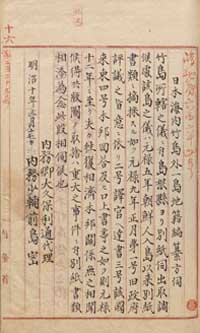 日本海内竹島外一島地籍編纂方伺
竹島所轄之儀ニ付島根縣ヨリ別紙伺出取調
候處該島之儀ハ元禄五年朝鮮人入島以来別紙
書類ニ摘採スル如ク元禄九年正月第一号旧政府
評議之旨意ニ依リ二号譯官ヘ達書三号該國
来柬四号本邦回答及ヒ口上書等之如ク則元禄
十二年ニ至リ夫々往復相濟本邦関係無之相聞
候得共版圖ノ取捨ハ重大之事件ニ付別紙書類
相添為念此段相伺候也
明治十年三月十七日
内務卿大久保利通代理
内務少輔前島密